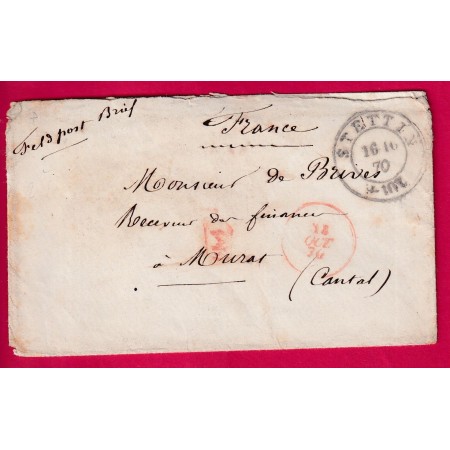 Feldpost Brief
France
STETTIN
16 10
70
Monsieur de Brives
Receveur des finances
OCT
70
à Murat
(Cantal)